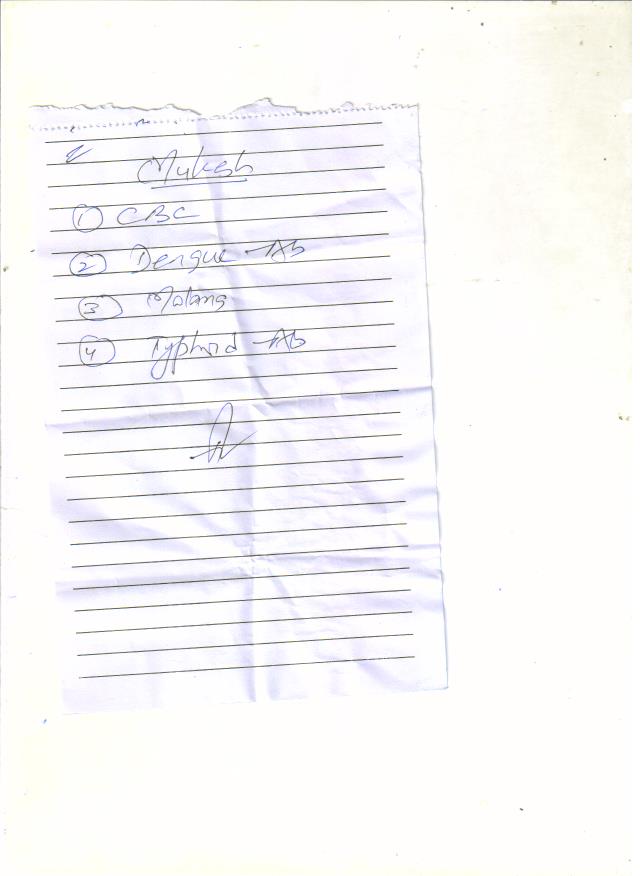 Mukesh
① CBC
② Dengue Ab
③ Malaria
④ Typhoid Ab